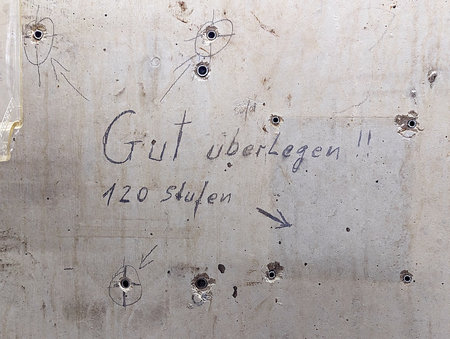 Gut uberlegen !!
120 stufen